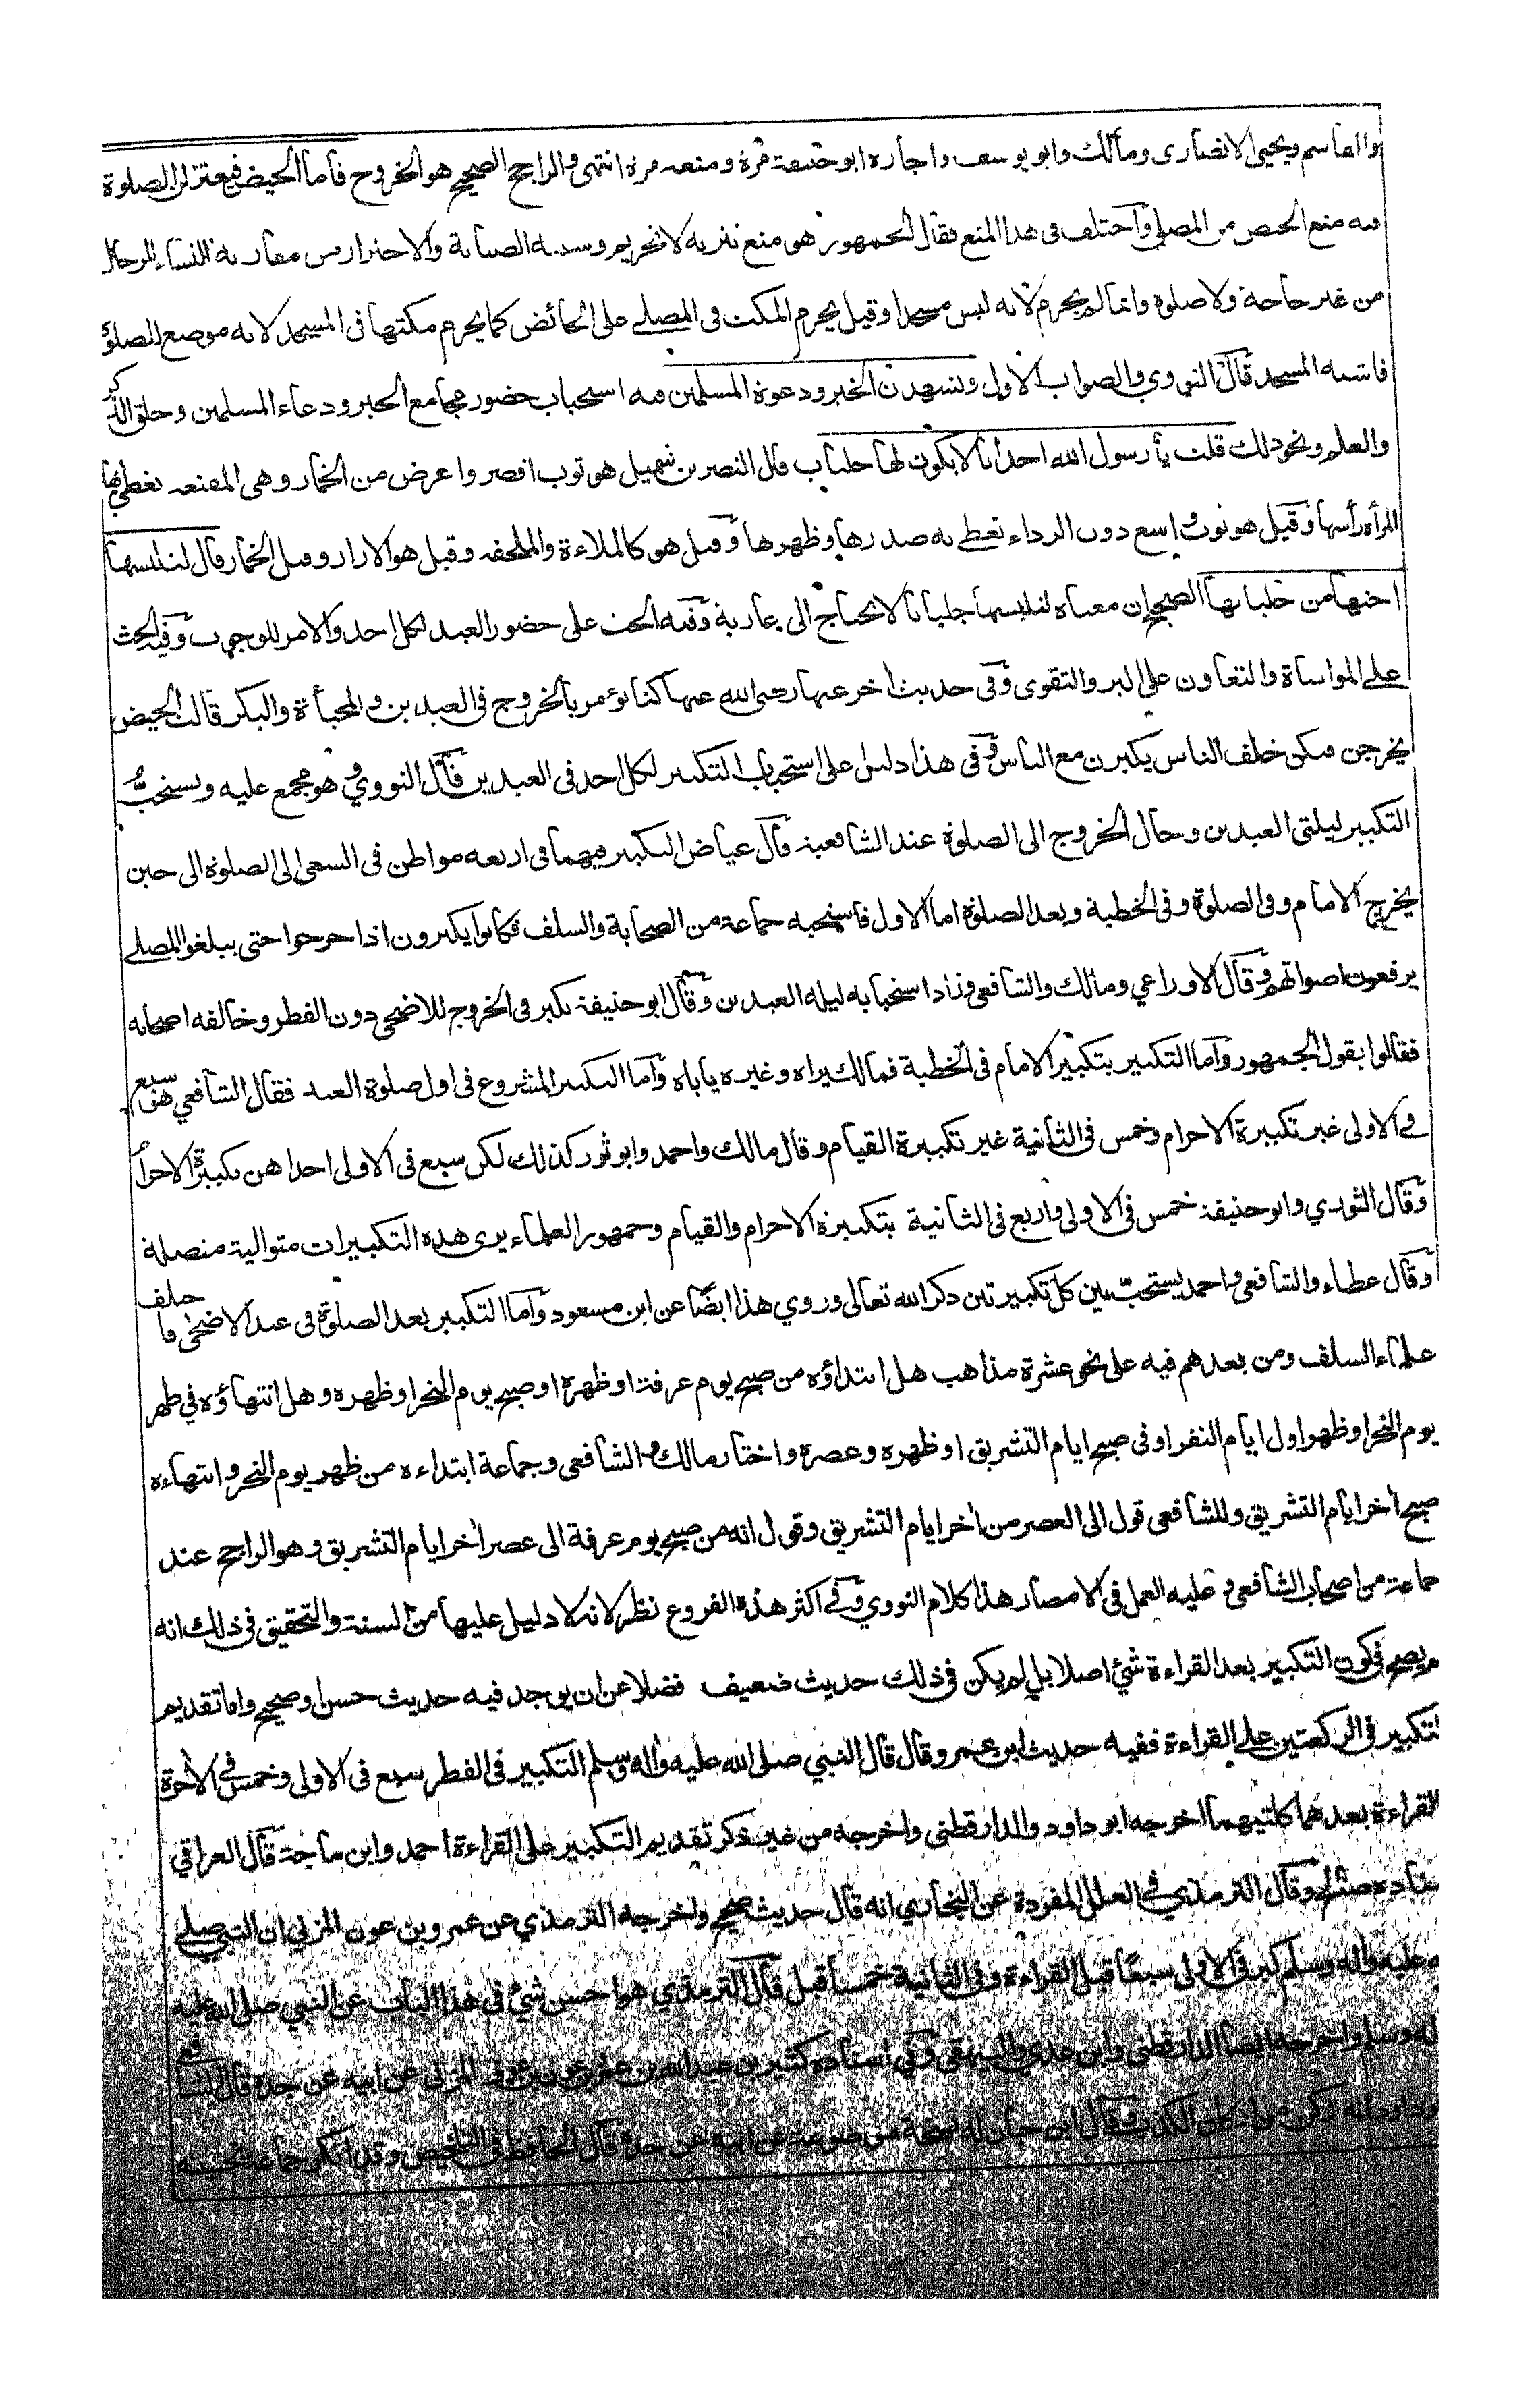 والقاسم ويحيى الانصارى ومالك وابو يوسف واجازه ابو حنيفة مرة ومنعه مرة انتهى والراجح الصحيح هو الخروج فاما الحيض فيعتزلن الصلوة
فيه منع الحيض من المصلى واختلف فى هذا المنع فقال الجمهور هو منع تنزيه لا تحريم وسببه الصيانة والاحتراز من مقاربة النساء للرجال
من غير حاجة ولا صلوة وانما لم يحرم لانه ليس مسجدا وقيل يحرم المكث فى المصلى على الحائض كما يحرم مكثها فى المسجد لانه موضع للصلوة
فاشبه المسجد قال النووي والصواب الاول ويشهدن الخير ودعوة المسلمين فيه استحباب حضور مجامع الخير ودعاء المسلمين وحلق الذكر
والعلم ونحو ذلك قلت يا رسول الله احدانا لا يكون لها جلباب قال النضر بن شميل هو ثوب اقصر واعرض من الخمار وهى المقنعة تغطى بها
المرأة رأسها وقيل هو ثوب واسع دون الرداء تغطى به صدرها وظهرها وقيل هو كالملاءة والملحفة وقيل هو الازار وقيل الخمار قال لتلبسها
اختها من جلبابها الصحيح ان معناه لتلبسها جلبابا لا تحتاج الى عارية وفيه الحث على حضور العيد لكل احد والامر للوجوب وفيه الحث
على المواساة والتعاون على البر والتقوى وفى حديث اخر عنها رضى الله عنها كنا نؤمر بالخروج فى العيدين والمخبأة والبكر قالت الحيض
يخرجن فيكن خلف الناس يكبرن مع الناس وفى هذا دليل على استحباب التكبير لكل احد فى العيدين قال النووي وهو مجمع عليه ويستحبُّ
التكبير ليلتى العيدين وحال الخروج الى الصلوة عند الشافعية قال عياض التكبير فيهما فى اربعة مواطن فى السعى الى الصلوة الى حين
يخرج الامام وفى الصلوة وفى الخطبة وبعد الصلوة اما الاول فاستحبه جماعة من الصحابة والسلف فكانوا يكبرون اذا خرجوا حتى يبلغوا المصلى
يرفعون اصواتهم وقال الاوزاعي ومالك والشافعى وزاد استحبابه ليلة العيدين وقال ابو حنيفة يكبر فى الخروج للاضحى دون الفطر وخالفه اصحابه
فقالوا بقول الجمهور واما التكبير بتكبير الامام فى الخطبة فمالك يراه وغيره ياباه واما التكبير المشروع فى اول صلوة العيد فقال الشافعي هو سبع
فى الاولى غير تكبيرة الاحرام وخمس فى الثانية غير تكبيرة القيام وقال مالك واحمد وابو ثور كذلك لكن سبع فى الاولى احداهن تكبيرة الاحرام
وقال الثوري وابو حنيفة خمس فى الاولى واربع فى الثانية بتكبيرة الاحرام والقيام وجمهور العلماء يرى هذه التكبيرات متوالية متصلة
وقال عطاء والشافعى واحمد يستحبّ بين كل تكبيرتين ذكر الله تعالى وروي هذا ايضًا عن ابن مسعود واما التكبير بعد الصلوة فى عيد الاضحى فاختلف
علماء السلف ومن بعدهم فيه على نحو عشرة مذاهب هل ابتداؤه من صبح يوم عرفة او ظهره او صبح يوم النحر او ظهره وهل انتهاؤه فى ظهر
يوم النحر او ظهر اول ايام النفر او فى صبح ايام التشريق او ظهره وعصره واختار مالك والشافعى وجماعة ابتداءه من ظهر يوم النحر وانتهاءه
صبح اخر ايام التشريق وللشافعى قول الى العصر من اخر ايام التشريق وقول انه من صبح يوم عرفة الى عصر اخر ايام التشريق وهو الراجح عند
جماعة من اصحاب الشافعى وعليه العمل فى الامصار هذا كلام النووي وفى اكثر هذه الفروع نظر لانه لا دليل عليها من السنة والتحقيق فى ذلك انه
لم يصح فى كون التكبير بعد القراءة شئ اصلا بل لم يكن فى ذلك حديث ضعيف فضلا عن ان يوجد فيه حديث حسن او صحيح واما تقديم
التكبير فى الركعتين على القراءة ففيه حديث ابن عمر وقال قال النبي صلى الله عليه واله وسلم التكبير فى الفطر سبع فى الاولى وخمس فى الاخرة
القراءة بعدهما كلتيهما اخرجه ابو داود والدارقطنى واخرجه من غير ذكر تقديم التكبير على القراءة احمد وابن ماجة قال العراقي
اسناده صالح وقال الترمذي فى العلل المفردة عن البخاري انه قال حديث صحيح واخرجه الترمذي عن عمرو بن عون المزني ان النبي صلى
الله عليه واله وسلم كبر فى الاولى سبعًا قبل القراءة وفى الثانية خمسا قبل قال الترمذي هو احسن شئ فى هذا الباب عن النبي صلى الله عليه
اله وسلم واخرجه ايضا الدارقطنى وابن عدي والبيهقى وفى اسناده كثير بن عبد الله بن عمرو بن عوف المزنى عن ابيه عن جده قال الشافعي
وداود انه ركن من اركان الكذب وقال ابن حبان له نسخة موضوعة عن ابيه عن جده قال الحافظ فى التلخيص وقد انكر جماعة تحسينه